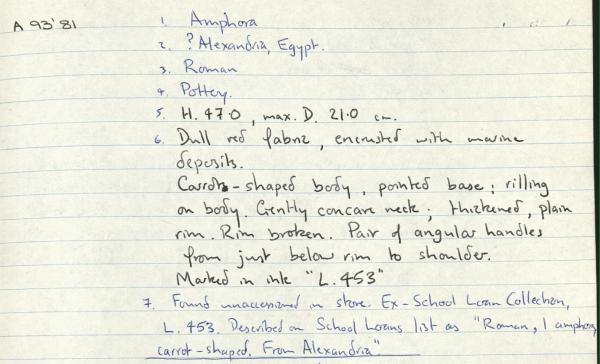 A 93'81
1. Amphora
2. ? Alexandria, Egypt.
3. Roman
4. Pottery.
5. H. 47.0, max. D. 21.0 cm.
6. Dull red fabric, encrusted with marine
deposits.
Carrot-shaped body, pointed base; rilling
on body. Gently concave neck; thickened, plain
rim. Rim broken. Pair of angular handles
from just below rim to shoulder.
Marked in ink "L.453"
7. Found unaccessioned in store. Ex-School Loan Collection,
L.453. Described on School Loans list as "Roman, 1 amphora,
carrot-shaped. From Alexandria"